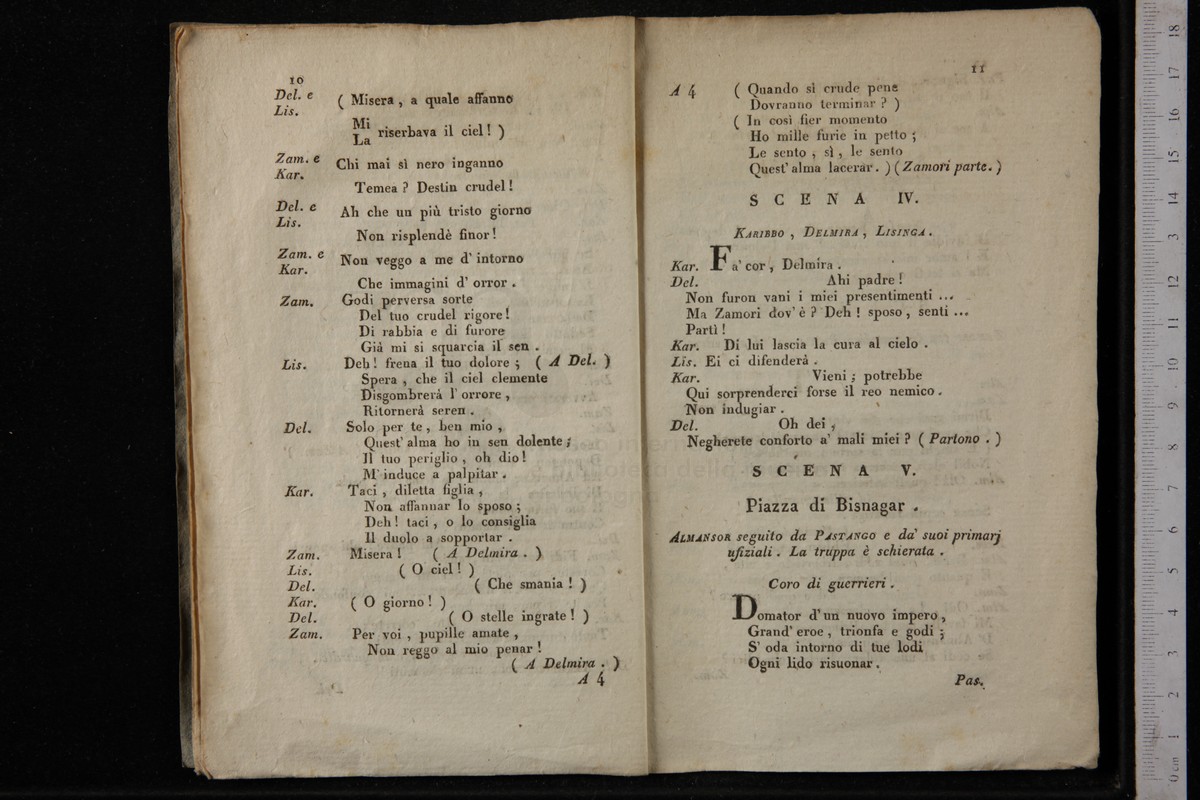 10
Del. e
Lis.
( Misera , a quale affanno
Mi
La riserbava il ciel ! )
Zam. e
Kar.
Chi mai sì nero inganno
Temea ? Destin crudel !
Del. e
Lis.
Ah che un più tristo giorno
Non risplendè finor !
Zam. e
Kar.
Non veggo a me d' intorno
Che immagini d' orror .
Zam. Godi perversa sorte
Del tuo crudel rigore !
Di rabbia e di furore
Già mi si squarcia il sen .
Lis. Deh ! frena il tuo dolore ; ( A Del. )
Spera , che il ciel clemente
Disgombrerà l' orrore ,
Ritornerà seren .
Del. Solo per te , ben mio ,
Quest' alma ho in sen dolente ;
Il tuo periglio , oh dio !
M' induce a palpitar .
Kar. Taci , diletta figlia ,
Non affannar lo sposo ;
Deh ! taci , o lo consiglia
Il duolo a sopportar .
Zam. Misera ! ( A Delmira . )
Lis. ( O ciel ! )
Del. ( Che smania ! )
Kar. ( O giorno ! )
Del. ( O stelle ingrate ! )
Zam. Per voi , pupille amate ,
Non reggo al mio penar !
( A Delmira . )
A 4
11
A 4 ( Quando sì crude pene
Dovranno terminar ? )
( In così fier momento
Ho mille furie in petto ;
Le sento , sì , le sento
Quest' alma lacerar . ) ( Zamori parte. )
SCENA IV.
KARIBBO , DELMIRA , LISINGA .
Kar. Fa' cor , Delmira .
Del. Ahi padre !
Non furon vani i miei presentimenti ...
Ma Zamori dov' è ? Deh ! sposo , senti ...
Partì !
Kar. Di lui lascia la cura al cielo .
Lis. Ei ci difenderà .
Kar. Vieni ; potrebbe
Qui sorprenderci forse il reo nemico .
Non indugiar .
Del. Oh dei ,
Negherete conforto a' mali miei ? ( Partono . )
SCENA V.
Piazza di Bisnagar .
ALMANSOR seguito da PASTANGO e da' suoi primarj
ufiziali . La truppa è schierata .
Coro di guerrieri .
Domator d' un nuovo impero ,
Grand' eroe , trionfa e godi ;
S' oda intorno di tue lodi
Ogni lido risuonar .
Pas.